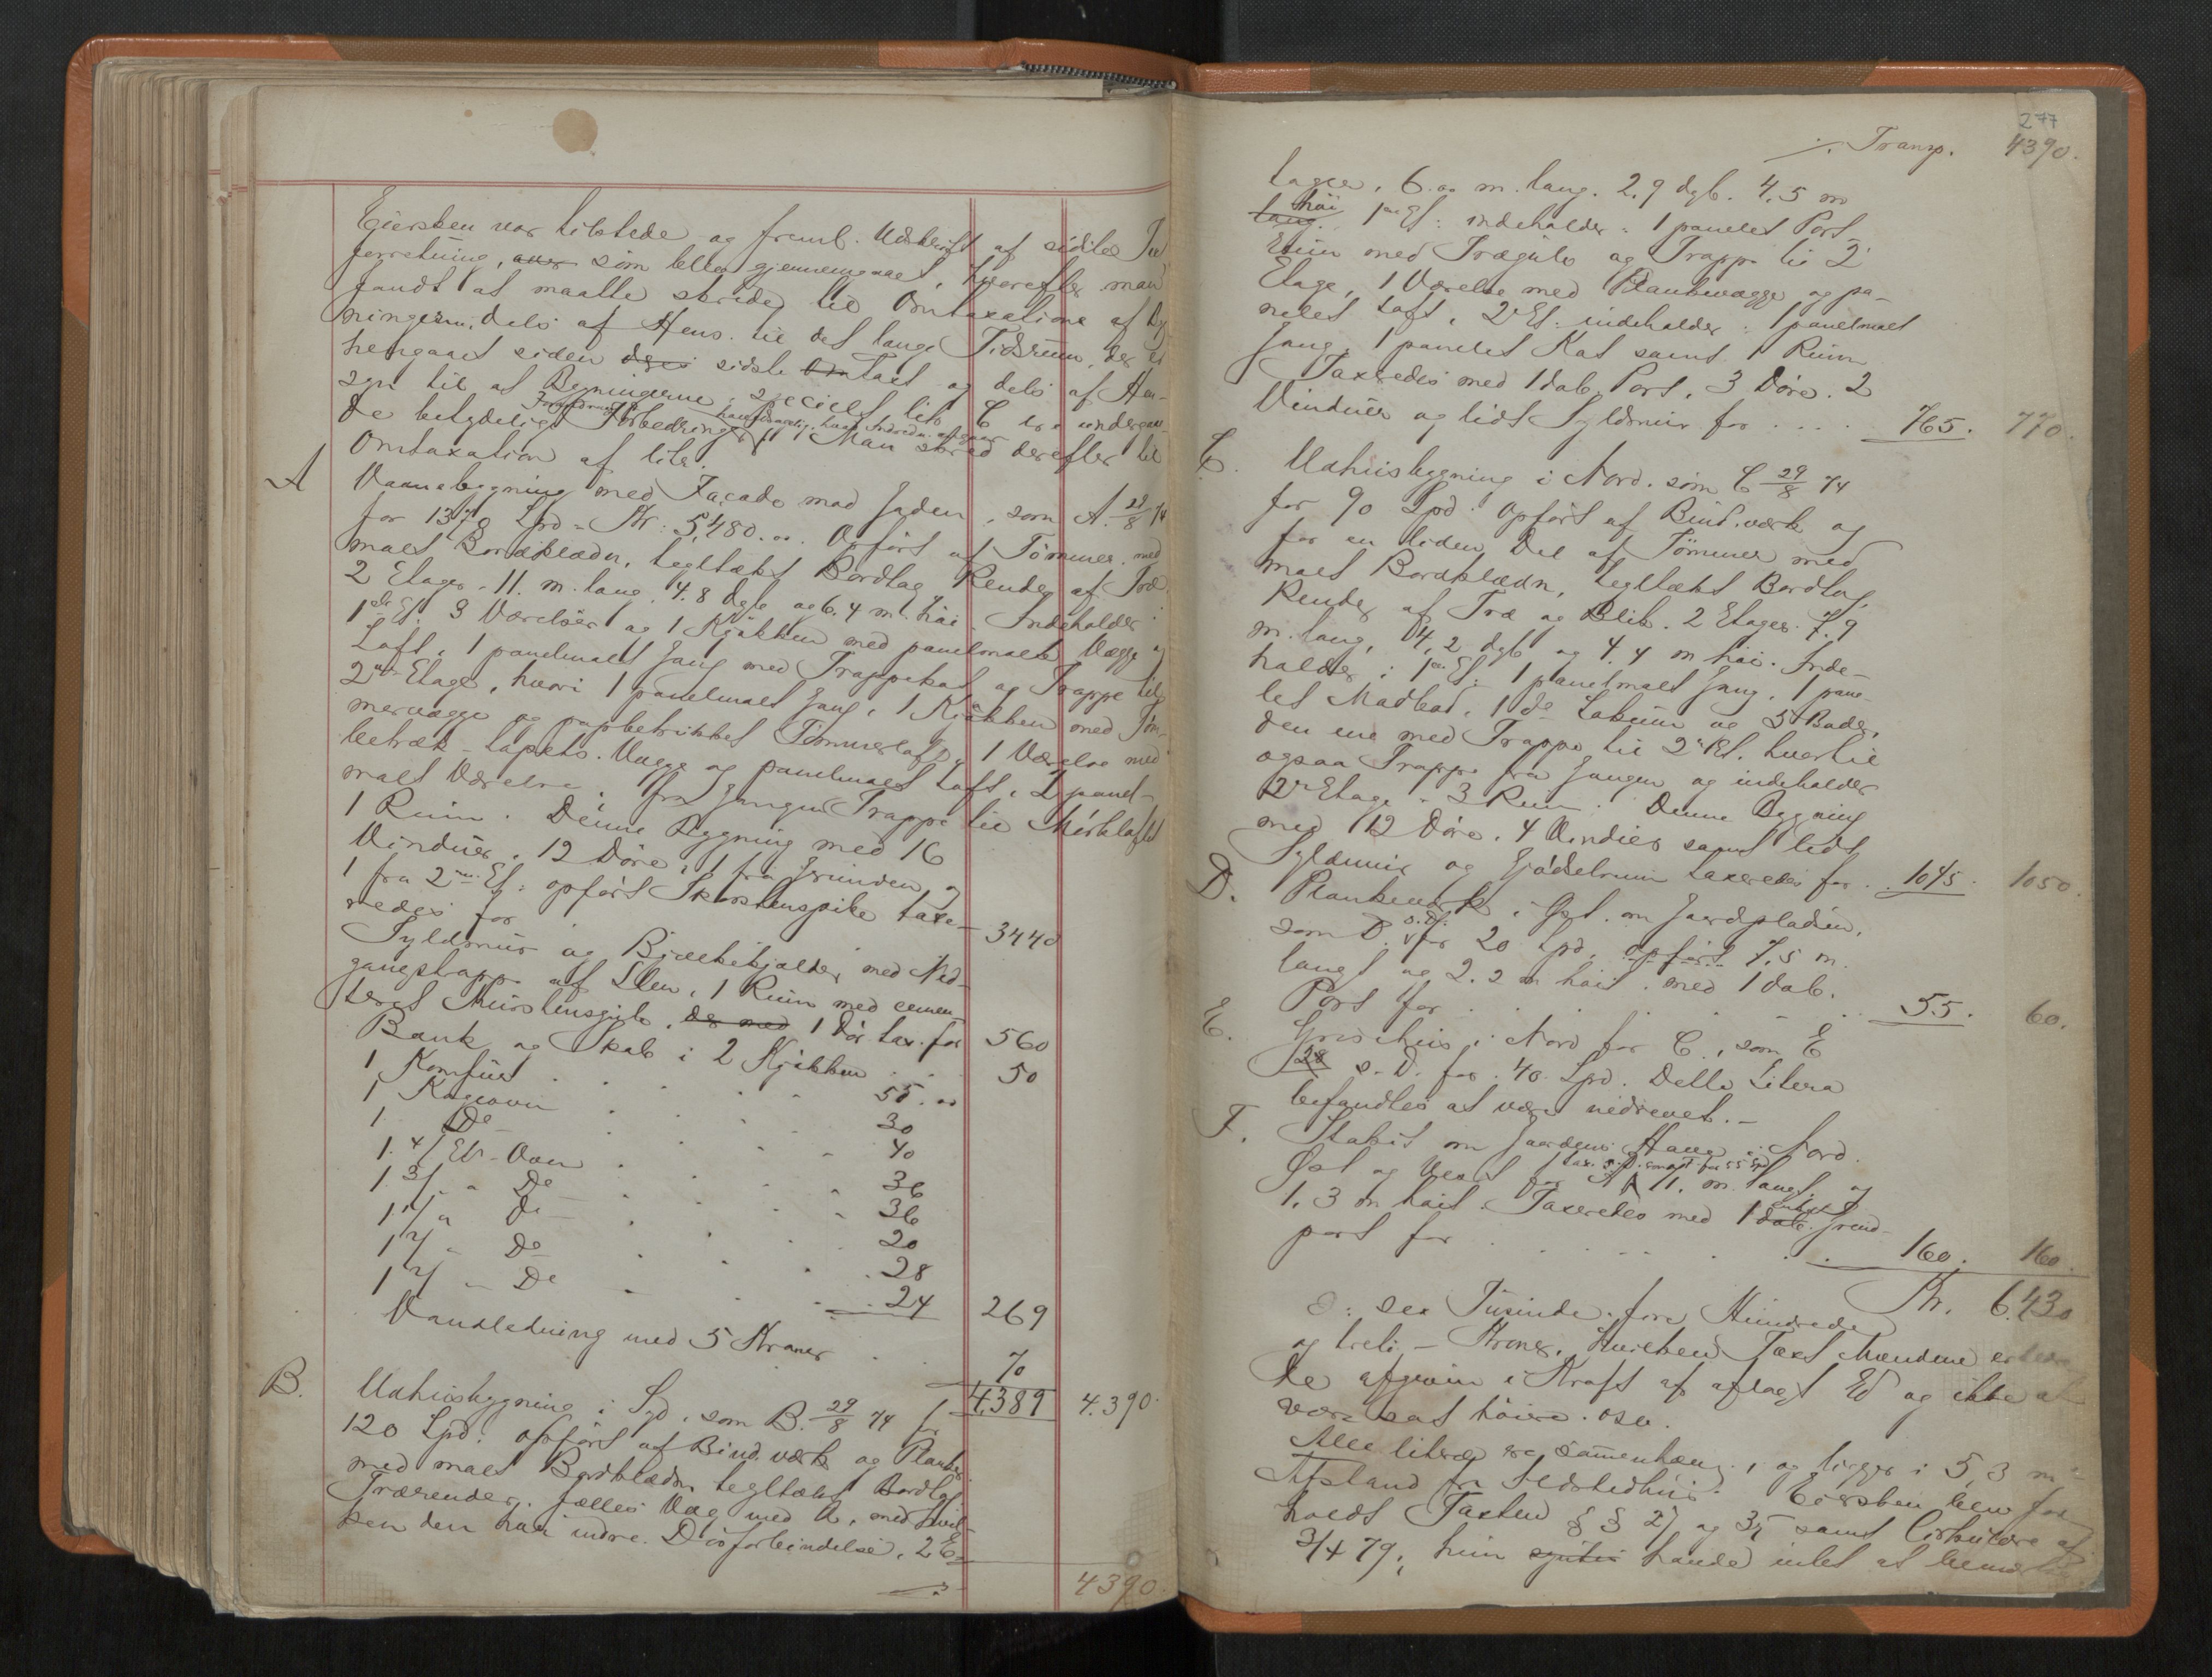 Eiersken var tilstede og freml. Udskrift af sidste
forretning, som blev gjennemgaaet, hvorefter man
fandt at maatte skride til Omtaxation af Byg-
ningerne, dels af Hens. til det lange Tidsrum, der er
hengaaet siden sidste Omtaxt og dels af Hen-
syn til at Bygningerne, specielt lit. C ere undergaa-
de betydelige Forbedringer. Man skred derefter til
Omtaxation af litr.
A Vaanebygning med Façade mod Gaden, som A. 29/8 74
for 1370 Spd = Kr: 5,480.00. Opført af Tømmer med
malt Bordklædn, tegltækt Bordtag Render af Træ.
2 Etager. 11. m. lang. 4.8 dyb og 6.4 m. høi. Indeholder:
1ste Et. 3 Værelser og 1 Kjøkken med panelmalte Vægge og
Loft, 1 panelmalt Gang med Trappekot og Trappe til
2den Etage, hvori 1 panelmalt Gang, 1 Kjøkken med Tøm-
mervægge og papbetrukket Tømmerloft, 1 Værelse med
betræk-tapets. Vægge og panelmalt Loft, 2 panel-
malt Værelse. fra Gangen Trappe til Mørkloftet
1 Rum. Denne Bygning med 16
Vinduer, 12 Døre, 1 fra Grunden, og
1 fra 2den Et: opført Skorstenspibe taxe-
redes for 3440
Syldmur og Bjælkekjælder, med Ned-
gangstrappe af Sten, 1 Rum med cemen-
teret Murstensgulv, der med 1 Dør tax. for 560
Bænk og Skab i 2 Kjøkken 50
1 Komfur 55.00
1 Kogeovn 30
1 Do 40
1 4/Et-Ovn 36
1 3/ " Do 36
1 " Do 20
1 2/ " Do 28
1 2/ " Do 24 269
Vandledning med 5 Kraner 70
4,389 4.390.
B. Udhusbygning i Syd, som B. 29/8 74 for
120 Spd. opført af Bind.værk og Planker
med malt Bordklædn tegltækt Bordtag
Trærender. fælles Væg med A, med hvil-
ken den har indre Dørforbindelse, 2 E-
4390.
277
./. Transp. 4390.
tager, 6.00 m. lang. 2.9 dyb. 4.5 m
lang høi 1ste Et: indeholder: 1 panelet Port
Rum med Trægulv og Trappe til 2
Etage, 1 Værelse med Plankevægge og pa-
nelet Loft, 2 Et: indeholder: 1 panelmalt
Gang, 1 panelet Kot samt 1 Rum
Taxeredes med 1 dob. Port, 3 Døre. 2
Vinduer og lidt Syldmur for .... 765. 770.
C. Udhusbygning i Nord. som C 29/8 74
for 90 Spd. Opført af Bind.værk og
for en liden Del af Tømmer med
malt Bordklædn, tegltækt Bordtag,
Render af Træ og Blik. 2 Etager. 7.9
m. lang, 4,2 dyb og 4.4 m høi. Inde-
holder i 1ste Et: 1 panelmalt Gang, 1 pane-
let Madbod, 1 do Lokum og 3 Boder,
den ene med Trappe til 2 Et. hvortil
ogsaa Trappe fra Gangen og indeholder
2 Etage: 3 Rum. Denne Bygning
med 12 Døre, 4 Vinduer samt lidt
Syldmur og Gjødselrum taxeredes for. 1045. 1050.
D. Plankeværk i Øst om Gaardpladsen,
som D. s.D. for 20 Spd, opført 7,5 m.
langt og 2.2 m høit. med 1 dob.
Port for 55. 60.
E. Grisehus i Nord for C., som E
s.D. for 40 Spd. Dette Litera
befandtes at være nedrevet.-
F. Stakit om Gaardens Have i Nord.
Øst og Vest for A tax. s.D. som F. for 55 Spd 11. m. langt og
1.3 m høit. Taxeredes med 1 dob. enkelt Grind-
port for 160. 160.
Kr. 6.430
o: sex Tusinde fire Hundrede
og treti - Kroner. Hvilken Taxt Mændene erklære-
de afgiven i Kraft af aflagt Ed og ikke at
være sat høiere. osv.
Alle litera ere sammenhæng. og ligger i 5,3 m
Afstand fra Eiersken blev fore-
holdt Taxten §§ 27 og 35 samt Cirkulære af
3/4 79, hun havde intet at bemærke